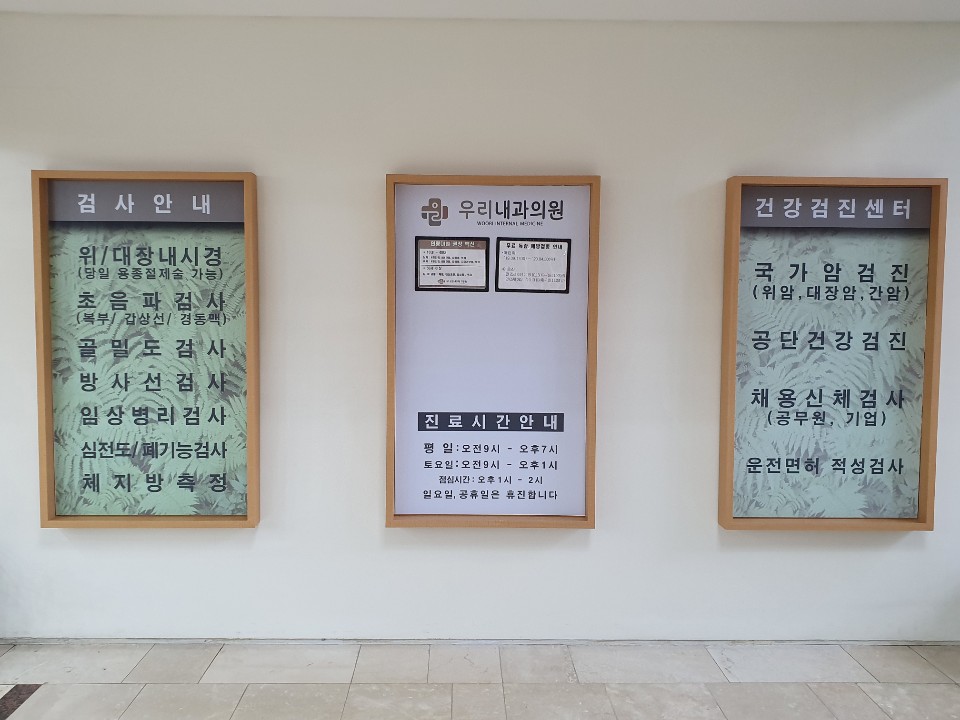 검사안내
위/대장내시경
(당일 용종절제술 가능)
초음파검사
(복부/ 갑상선/ 경동맥)
골밀도검사
방사선검사
임상병리검사
심전도/폐기능검사
체지방측정
우리
우리내과의원
WOORI INTERNAL MEDICINE
무료 독감 예방접종 안내
진료시간안내
평 일:오전9시 - 오후7시
토요일:오전9시 - 오후1시
점심시간:오후1시 - 2시
일요일,공휴일은 휴진합니다
건강검진센터
국가암검진
(위암,대장암,간암)
공단건강검진
채용신체검사
(공무원, 기업)
운전면허 적성검사